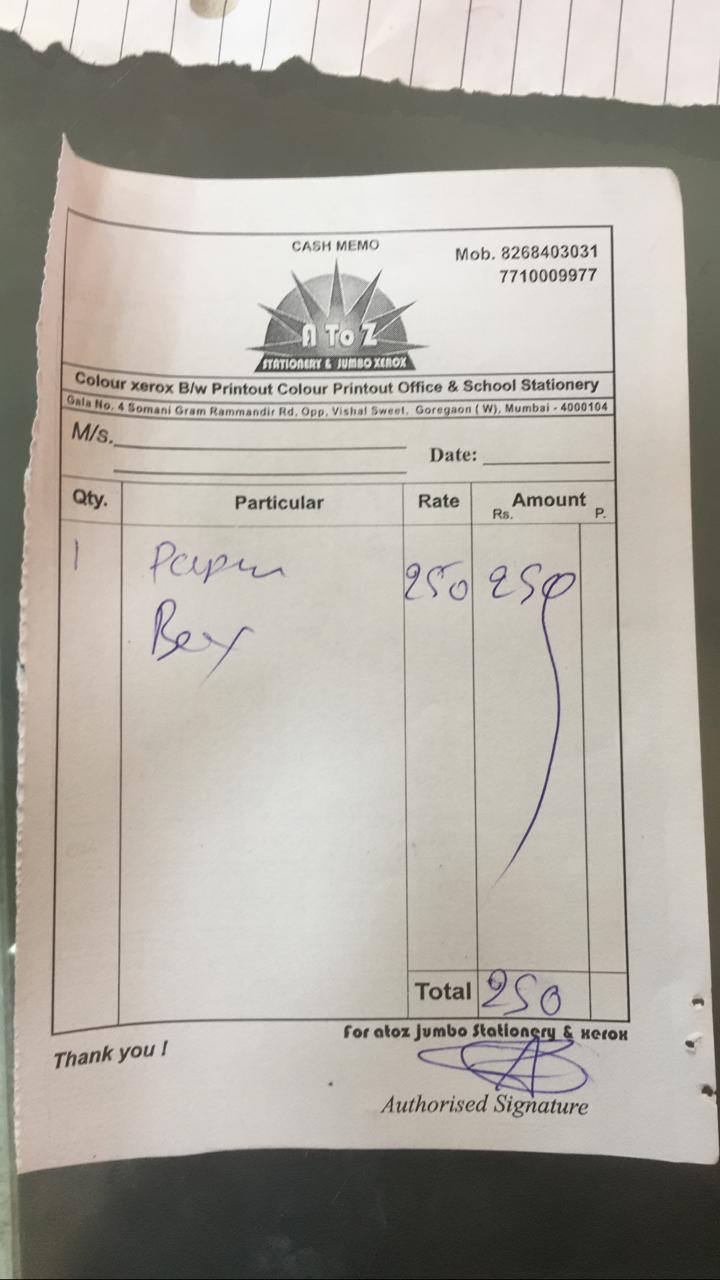 CASH MEMO
Mob. 8268403031
7710009977
A To Z
STATIONERY & JUMBO XEROX
Colour xerox B/w Printout Colour Printout Office & School Stationery
Gala No. 4 Somani Gram Rammandir Rd, Opp, Vishal Sweet, Goregaon ( W), Mumbai - 4000104
M/s.
Date:
Qty. Particular Rate Amount
Rs. P.
1 Paper 250 250
Box
Total 250
For atoz Jumbo Stationery & xerox
Thank you !
Authorised Signature